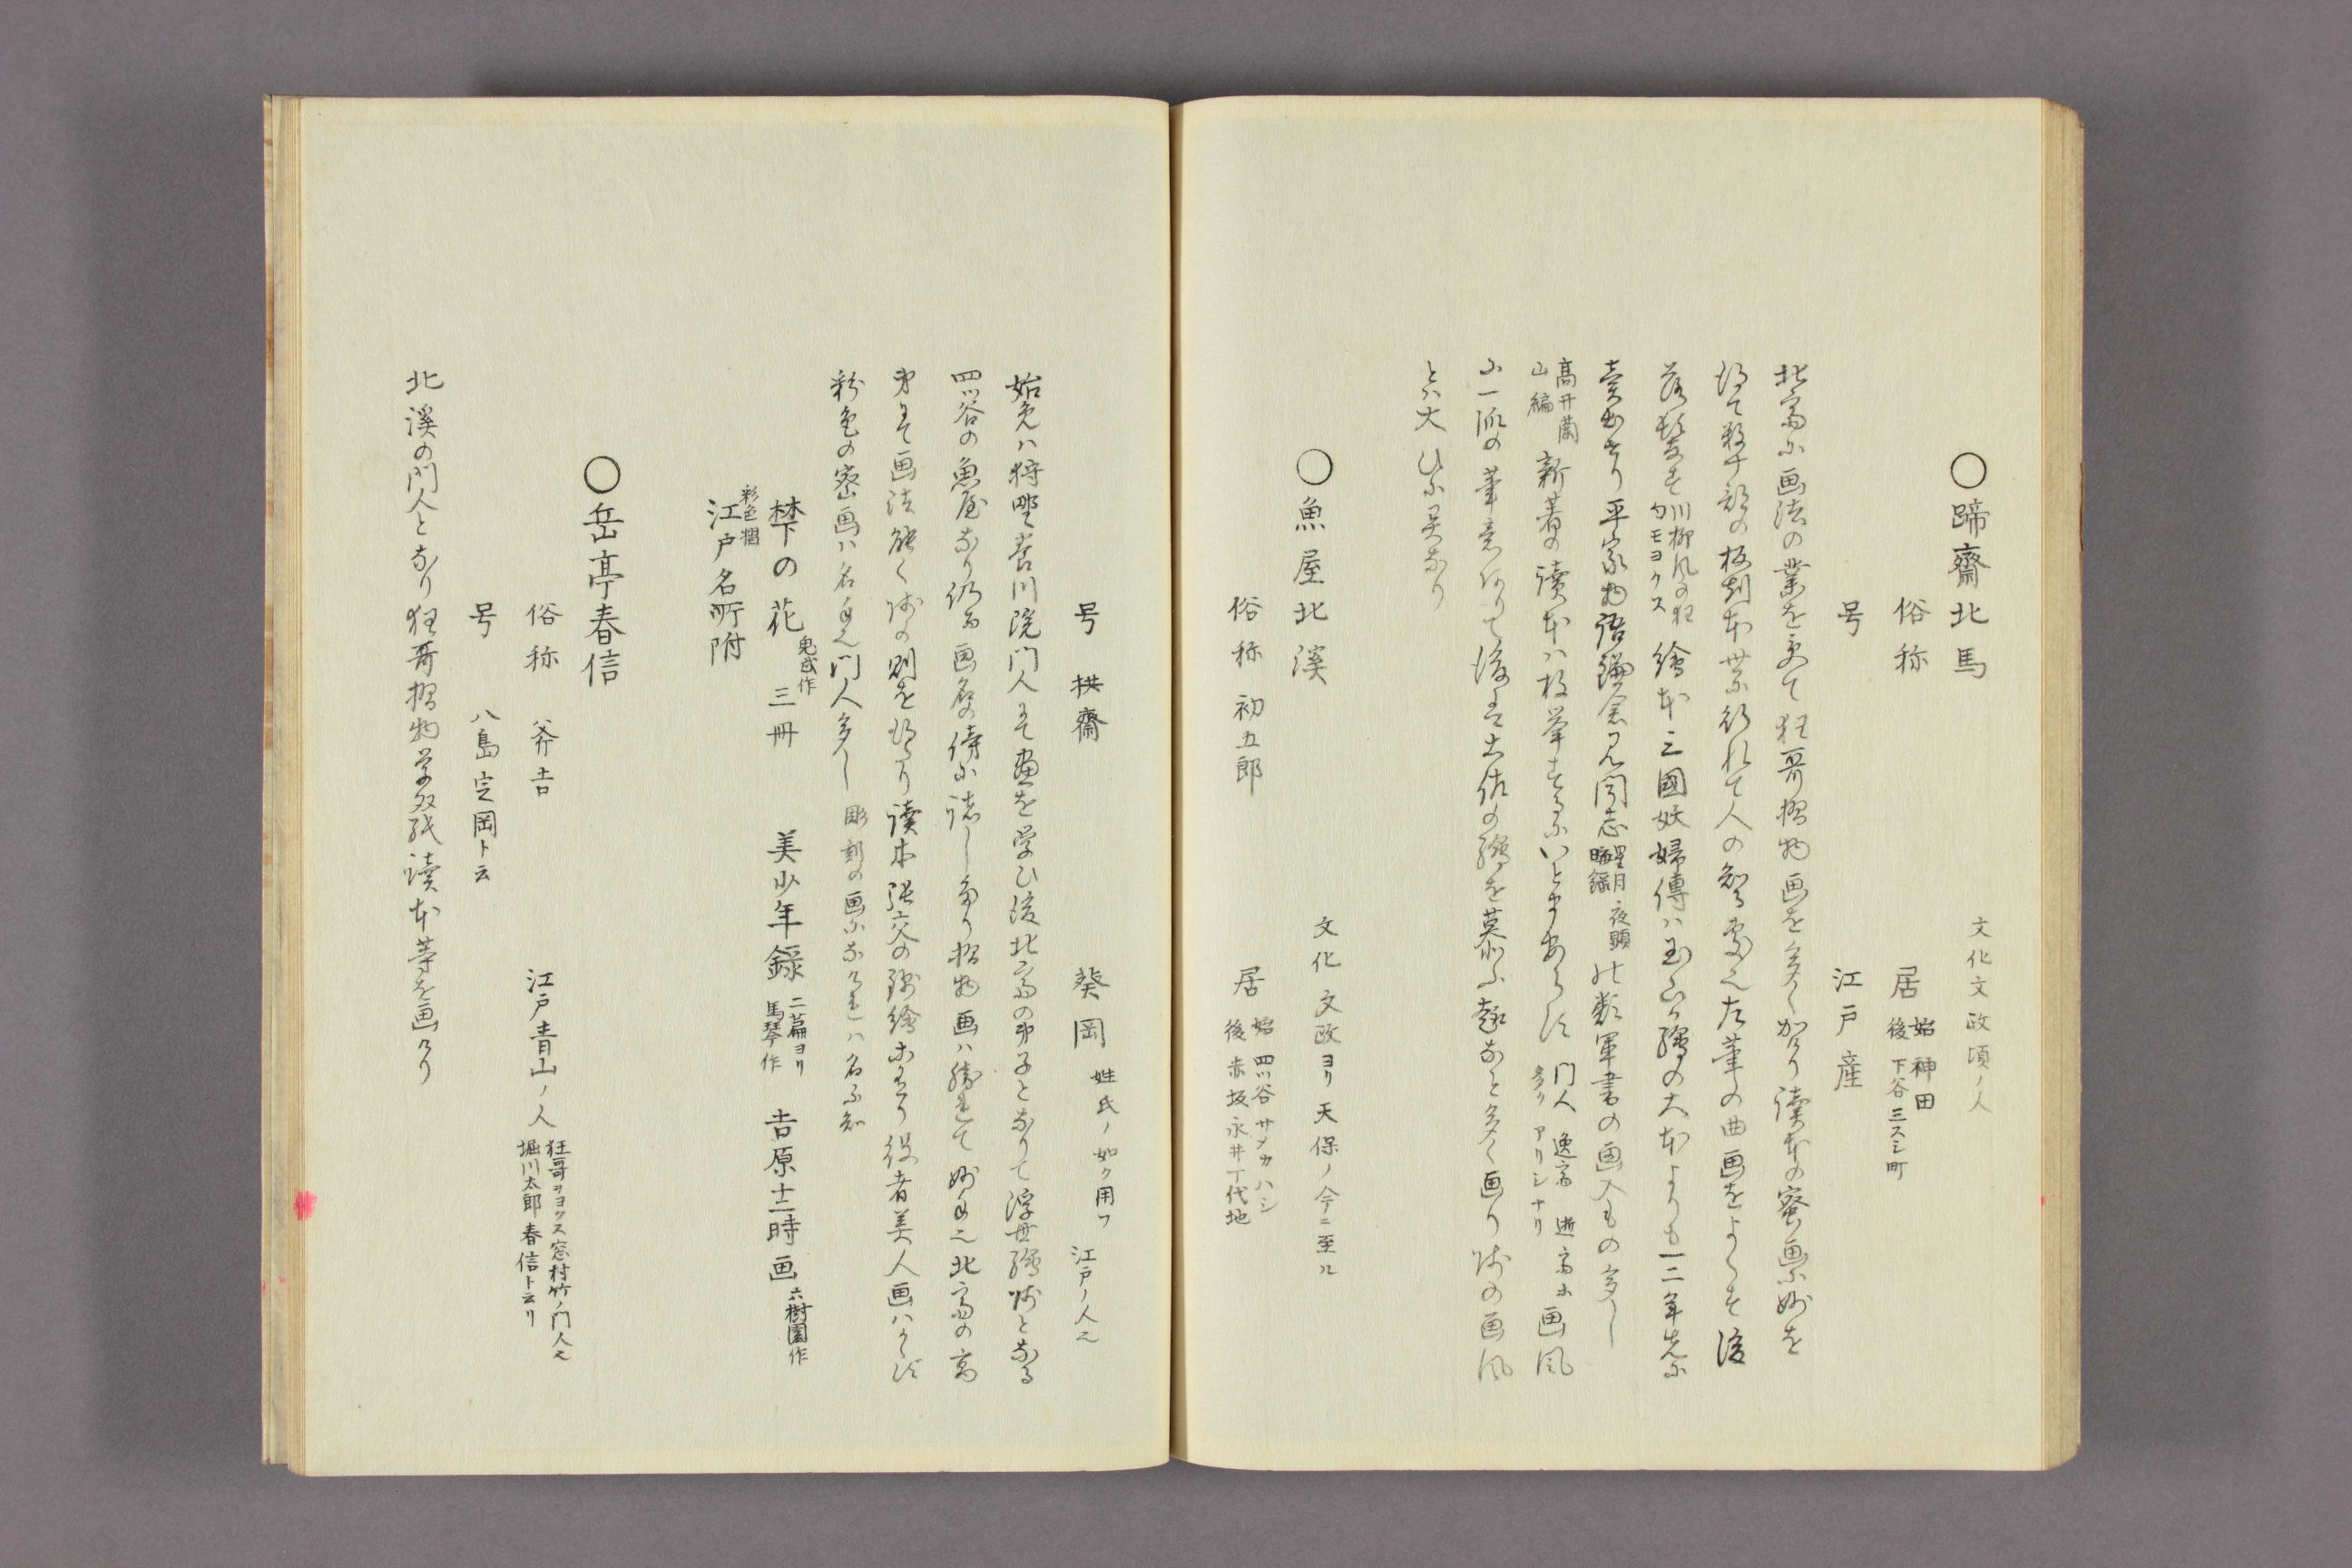 ○蹄齋北馬
文化文政頃ノ人
俗称
居 始神田 後下谷三スシ町
号
江戸産
北斎に画法の業を受て狂哥摺物画を多く画り讀本の密画に妙を
得て数十部の板刻本世に行れて人の知る處也左筆の曲画をよくす後
落髪す 川柳風の狂句モヨクス 繪本三國妖婦傳は玉山繪の大本よりも一二年先に
賣出せり平家物語鎌倉見聞志 星月夜顕晦録 此類軍書の画入もの多し
高井蘭山編 新著の讀本ハ枚挙するにいとまあらす 門人逸斎遊斎等多クアリシナリ 画風
に一派の筆意ありて後には土佐の繪を慕ふ趣なと多く画り時の画風
とハ大ひに異なり
○魚屋北溪
文化文政ヨリ天保ノ今ニ至ル
俗称 初五郎
居 始四ツ谷サメカハシ 後赤坂永井丁代地
号 拱齋
葵岡 姓氏ノ如ク用フ 江戸ノ人也
始免ハ狩野養川院門人にて画を学ひ後北斎の弟子となりて浮世繪師となる
四ツ谷の魚屋なり仍而画名の傍に誌しあり摺物画ハ勝れて妙手也北斎の高
弟にて画法能く師の則を得たり讀本張交の錦繪等あり役者美人画ハかゝす
彩色の密画ハ名手也門人多し 彫刻の画にあらされハ名に知
禁下の花 鬼武作 三冊
美少年録 二篇ヨリ馬琴作
吉原十二時画 六樹園作
彩色摺 江戸名所附
○岳亭春信
俗称 斧吉
江戸青山ノ人 狂哥ヲヨクス窓村竹ノ門人也 堀川太郎春信ト云リ
号 八島定岡ト云
北溪の門人となり狂哥摺物草双紙讀本等を画けり